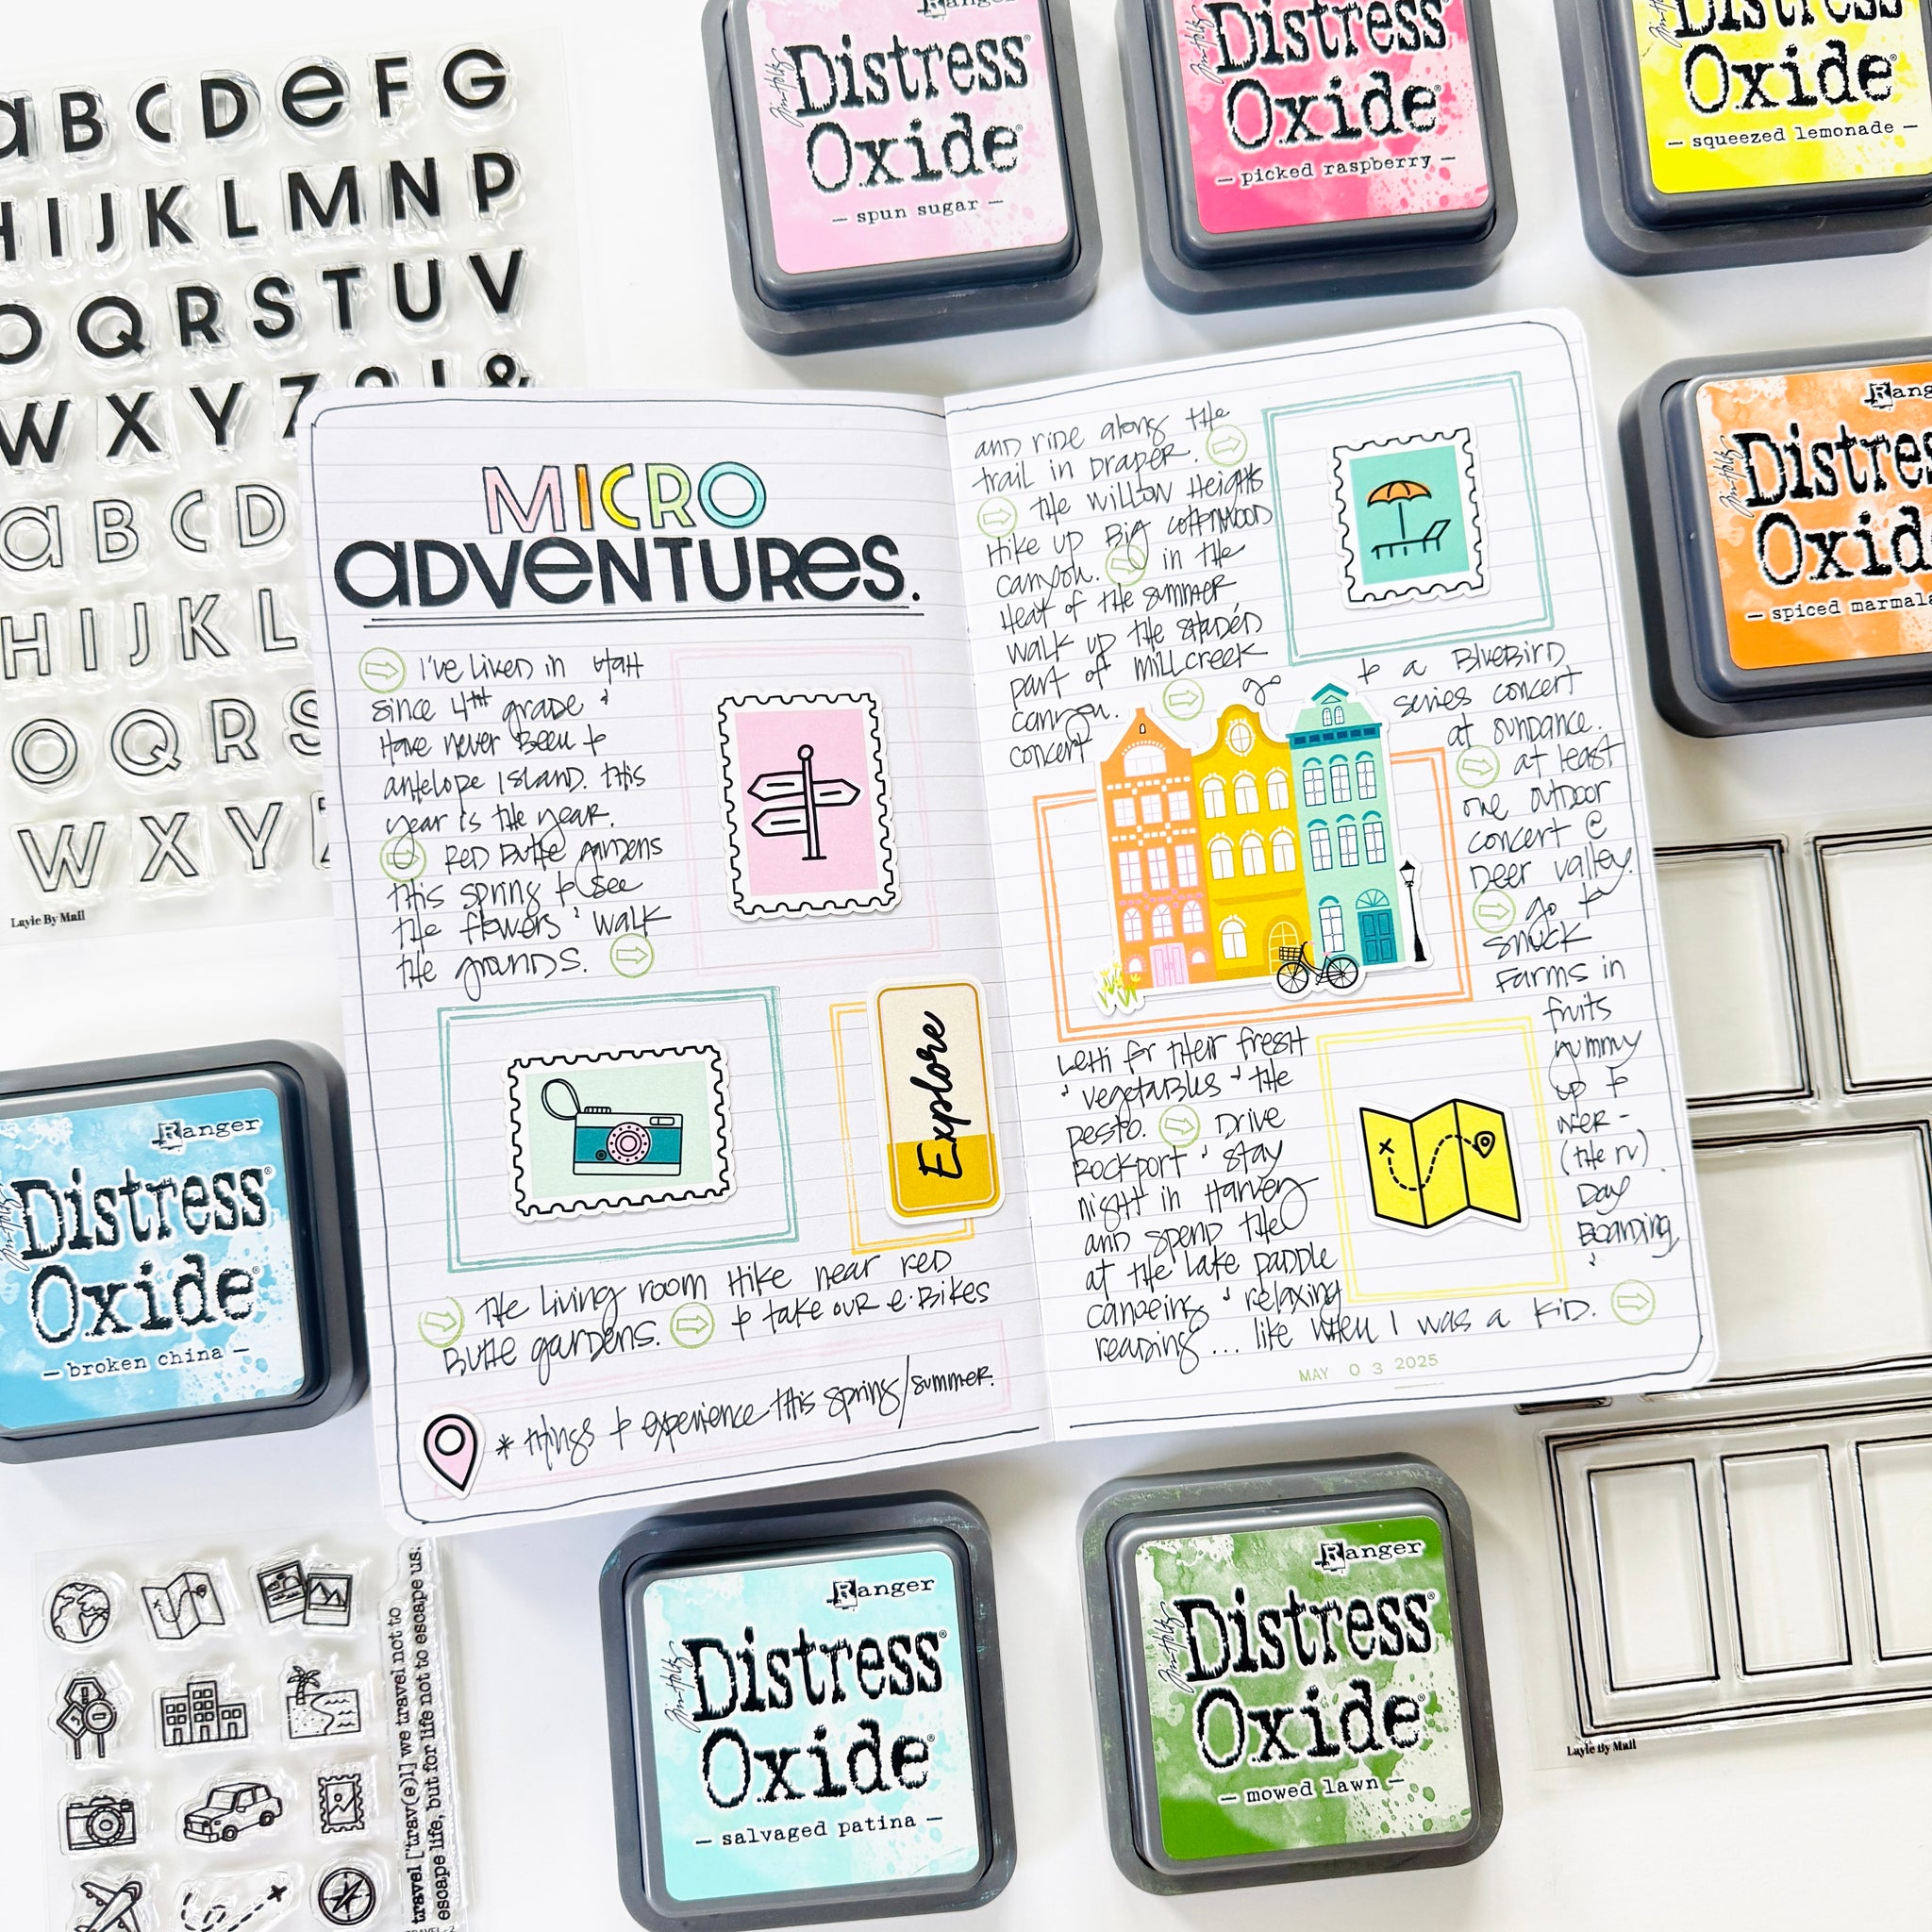 aBCDeFG
HIJKLMNP
OQRSTUV
WXYZ
&
aBCD
HIJKL
OQRS
WXY
Layle By Mail
Ranger
Tim Holtz
Distress
Oxide
— spun sugar —
Tim Holtz
Distress
Oxide
— picked raspberry —
Distress
Oxide
— squeezed lemonade —
Ranger
Tim Holtz
Distress
Oxide
— spiced marmala
MICRO
aDVeNTUReS.
I've lived in Utah
since 4th grade &
have never been to
antelope island. this
year is the year.
Red Butte gardens
this spring to see
the flowers & walk
the grounds.
Explore
the living room hike near red
Butte gardens. to take our e-Bikes
* things to experience this spring/summer.
and ride along the
trail in Draper.
the willow heights
hike up Big cottonwood
canyon. in the
heat of the summer
walk up the shaded
part of millcreek
canyon. go to a BlueBird
concert series concert
at sundance.
at least
one outdoor
concert @
Deer valley.
go to
snuck
Farms in
Lehi for their fresh fruits
& vegetables & the yummy
pesto. Drive up to
Rockport & stay
night in Harvey (the rv)
and spend the Day
at the lake paddle Boarding,
canoeing & relaxing &
reading... like when I was a kid.
MAY 03 2025
Ranger
Tim Holtz
Distress
Oxide
— broken china —
Ranger
Tim Holtz
Distress
Oxide
— salvaged patina —
Ranger
Tim Holtz
Distress
Oxide
— mowed lawn —
Layle By Mail
travel ['trav(e)l] we travel not to
escape life, but for life not to escape us.